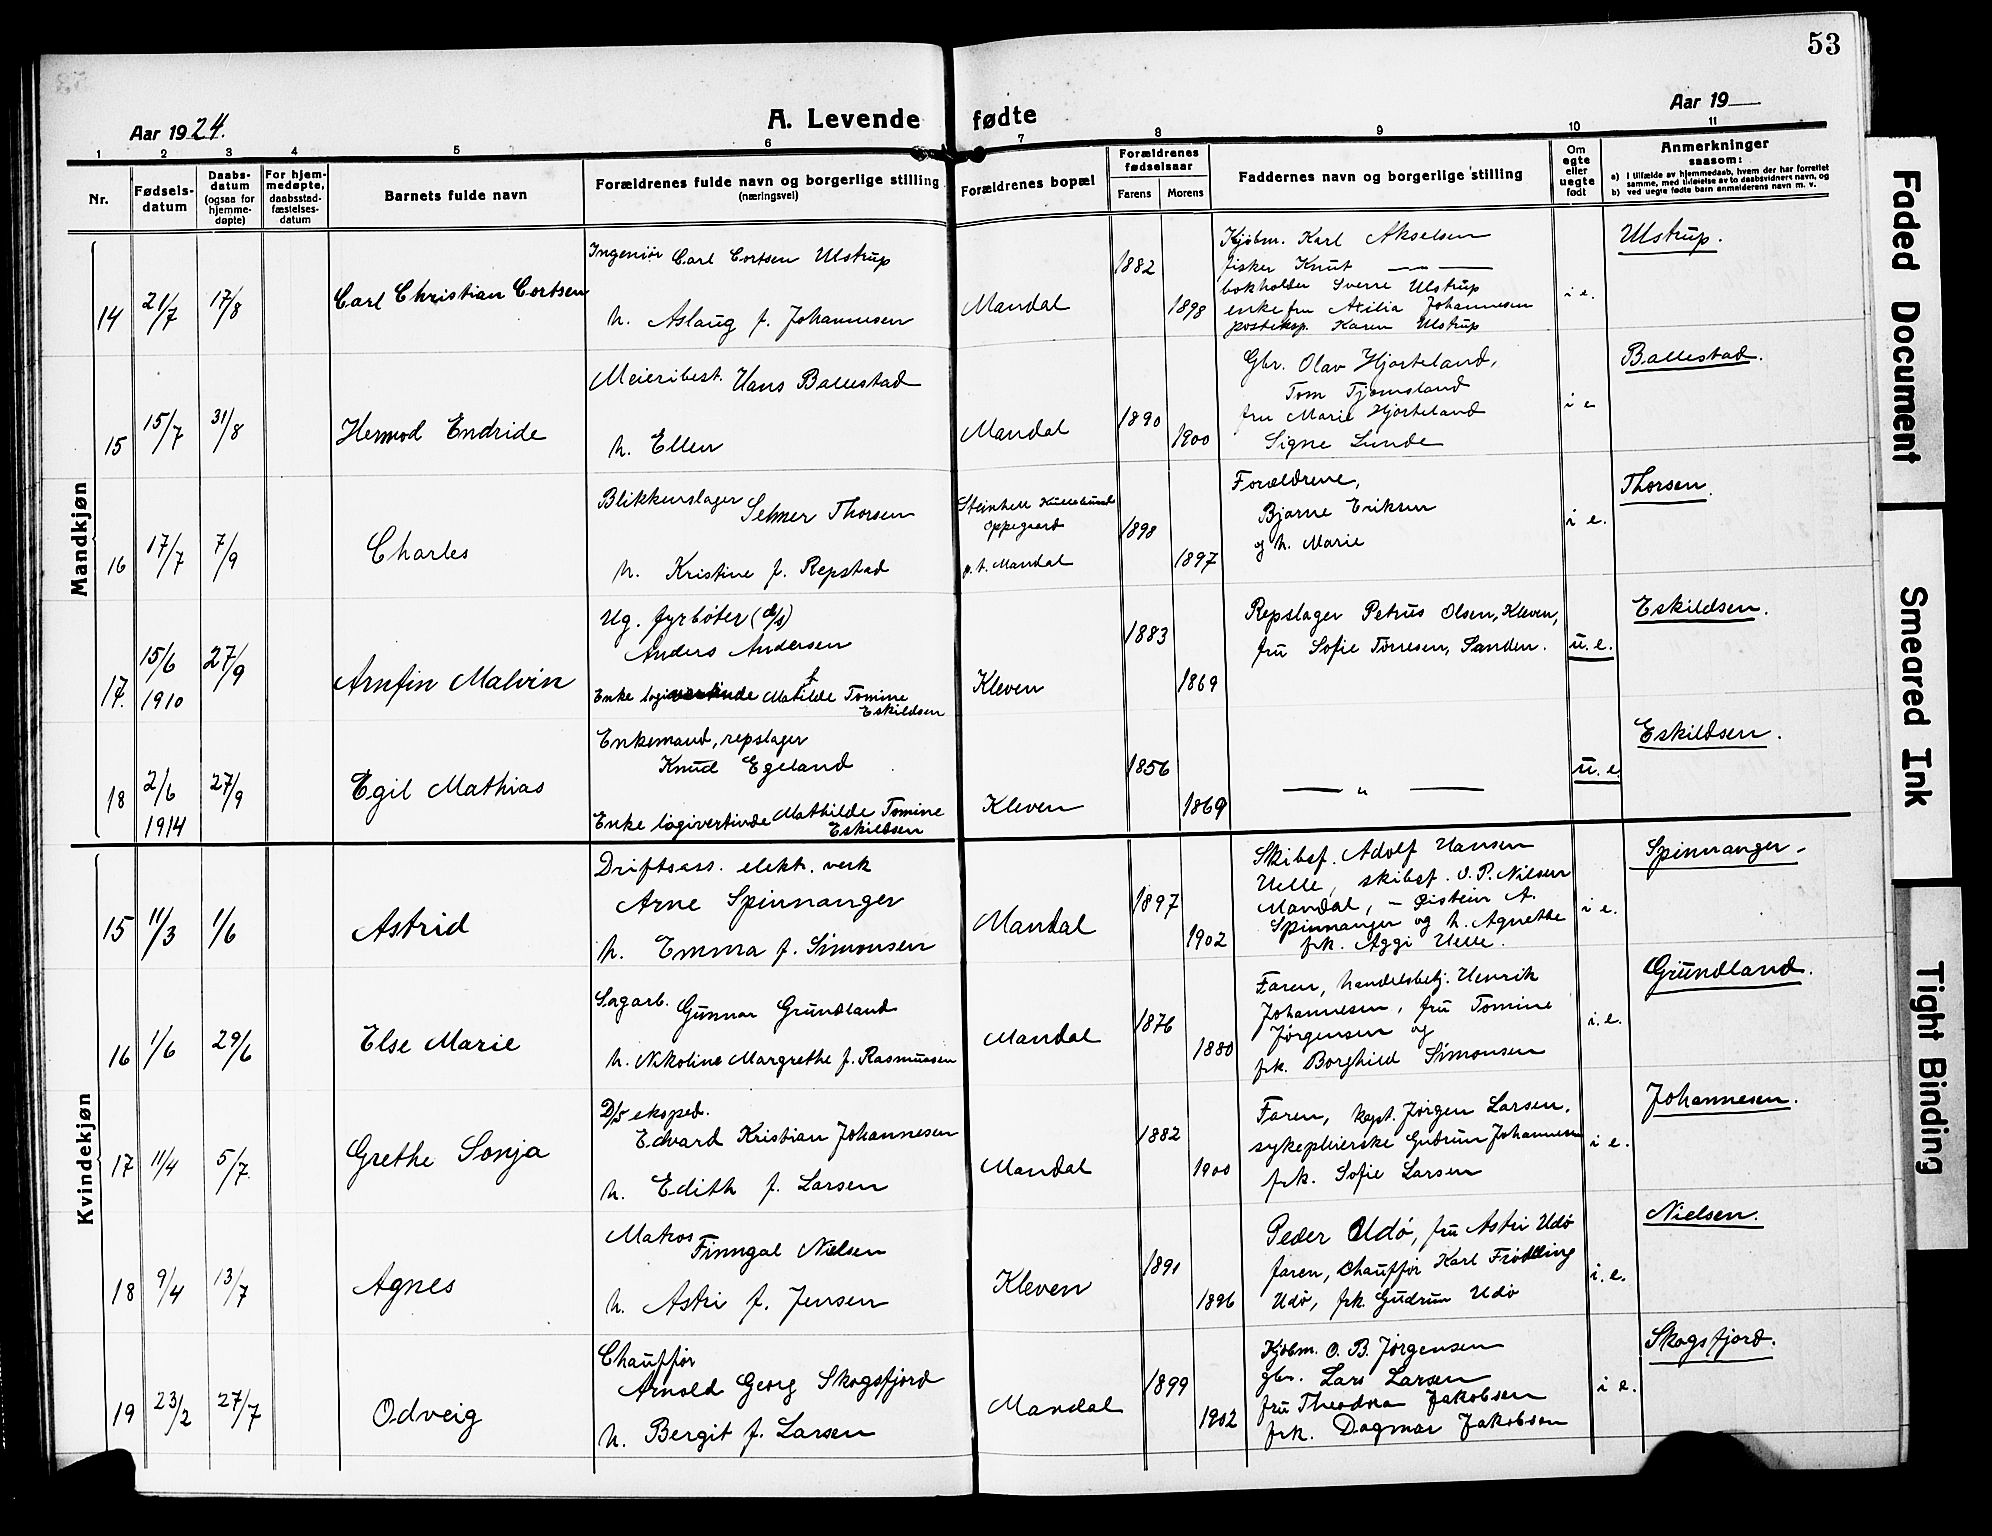 53
Aar 1924.
A. Levende fødte
Aar 19
1 2 3 4 5 6 7 8 9 10 11
Nr.
Fødsels-
datum
Daabs-
datum
(ogsaa for
hjemme-
døpte)
For hjem-
medøpte,
daabsstad-
fæstelses-
datum
Barnets fulde navn
Forældrenes fulde navn og borgerlige stilling
(næringsvei)
Forældrenes bopæl
Forældrenes
fødselsaar
Farens Morens
Faddernes navn og borgerlige stilling
Om
egte
eller
uegte
født
Anmerkninger
saasom:
a) i tilfælde av hjemmedaab, hvem der har forrettet
samme, med tilføielse av to daabsvidners navn, og
b) ved uegte fødte barn anmelderens navn m. v.
Mandkjøn
14 21/7 17/8 Carl Christian Cortsen
Ingeniør Carl Cortsen Ulstrup
h. Aslaug f. Johannesen
Mandal
1882 1898
Kjøbm. Karl Akselsen
fisker Knut — — —
bokholder Sverre Ulstrup
enkefru Axilia Johannesen
posteksp. Karen Ulstrup
i e.
Ulstrup.
15 15/7 31/8 Hermod Endride
Meieribest. Hans Ballestad
h. Ellen
Mandal
1890 1900
Gbr. Olav Hjorteland,
Tom Tjomsland
fru Marie Hjorteland
Signe Lunde
i e
Ballestad.
16 17/7 7/9 Charles
Blikkenslager Selmer Thorsen
h. Kristine f. Repstad
Steinhell Kullebund
Oppegaard
p.t. Mandal
1898 1897
Forældrene,
Bjarne Eriksen
og h. Marie
i e.
Thorsen.
17. 15/6 1910 27/9 Arnfin Malvin
Ug. fyrbøter (d/s)
Anders Andersen
Enke logivertinde Matilde Tomine
Eskildsen
Kleven
1883 1869
Repslager Petrus Olsen, Kleven,
fru Sofie Tønesen, Sanden.
u. e.
Eskildsen.
18 2/6 1914 27/9 Egil Mathias
Enkemand, repslager
Knud Egeland
Enke logivertinde Mathilde Tomine
Eskildsen
Kleven
1856 1869
— " —
u. e.
Eskildsen.
Kvindekjøn
15 11/3 1/6 Astrid
Driftsass. elekt. verk
Arne Spinnanger
h. Emma f. Simonsen
Mandal
1897 1902
Skibsf. Adolf Hansen
Uelle, skibsf. O. P. Nilsen
Mandal, — Øistein A.
Spinnanger og h. Agnethe
frk. Aggi Uelle.
i e.
Spinnanger.
16 1/6 29/6 Else Marie
Sagarb. Gunnar Grundland
h. Nikoline Margrethe f. Rasmussen
Mandal
1876 1880
Faren, handelsbetj. Henrik
Johannesen, fru Tomine
Jørgensen og
frk. Borghild Simonsen
i. e.
Grundland.
17 11/4 5/7. Grethe Sonja
D/S eksped.
Edvard Kristian Johannesen
h. Edith f. Larsen
Mandal
1882 1900
Faren, kapt. Jørgen Larsen,
sykepleierske Gudrun Johannesen
frk. Sofie Larsen
i e.
Johannesen.
18 9/4 13/7 Agnes
Matros Finngal Nielsen
h. Astri f. Jensen
Kleven
1891 1896
Peder Udø, fru Astri Udø
faren, chauffør Karl Frødling
Udø, frk. Gudrun Udø
i. e.
Nielsen.
19 23/2 27/7 Odveig
Chauffør
Arnold Georg Skogsfjord
h. Bergit f. Larsen
Mandal
1899 1902
Kjøbm. O. B. Jørgensen
gbr. Lars Larsen
fru Theodora Jakobsen
frk. Dagmar Jakobsen
i e.
Skogsfjord.
Faded Document
Smeared Ink
Tight Binding